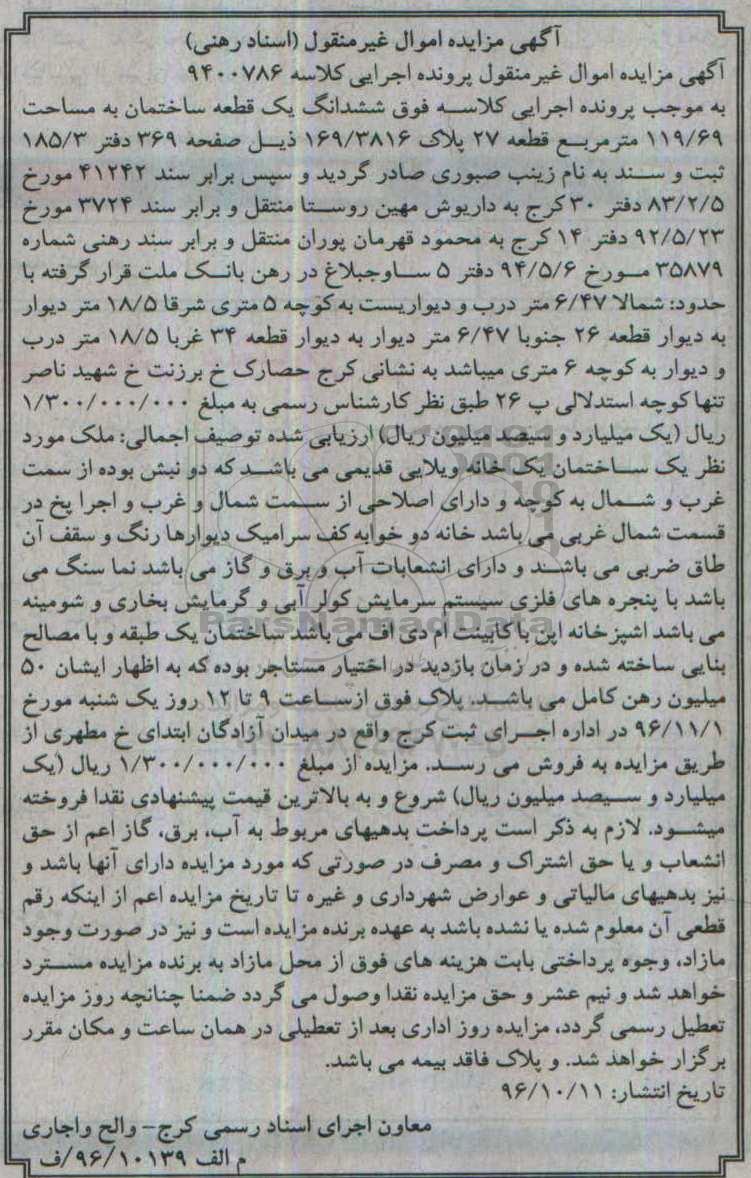 آگهی مزایده اموال غیرمنقول (اسناد رهنی)
آگهی مزایده اموال غیرمنقول پرونده اجرایی کلاسه ۹۴۰۰۷۸۶
به موجب پرونده اجرایی کلاسه فوق ششدانگ یک قطعه ساختمان به مساحت
۱۱۹/۶۹ مترمربع قطعه ۲۷ پلاک ۱۶۹/۳۸۱۶ ذیل صفحه ۳۶۹ دفتر ۱۸۵/۳
ثبت و سند به نام زینب صبوری صادر گردید و سپس برابر سند ۴۱۲۴۲ مورخ
۸۳/۲/۵ دفتر ۳۰ کرج به داریوش مهین روستا منتقل و برابر سند ۳۷۲۴ مورخ
۹۲/۵/۲۳ دفتر ۱۴ کرج به محمود قهرمان پوران منتقل و برابر سند رهنی شماره
۳۵۸۷۹ مورخ ۹۴/۵/۶ دفتر ۵ ساوجبلاغ در رهن بانک ملت قرار گرفته با
حدود: شمالا ۶/۴۷ متر درب و دیواریست به کوچه ۵ متری شرقا ۱۸/۵ متر دیوار
به دیوار قطعه ۲۶ جنوبا ۶/۴۷ متر دیوار به دیوار قطعه ۳۴ غربا ۱۸/۵ متر درب
و دیوار به کوچه ۶ متری میباشد به نشانی کرج حصارک خ برزنت خ شهید ناصر
تنها کوچه استدلالی پ ۲۶ طبق نظر کارشناس رسمی به مبلغ ۱/۳۰۰/۰۰۰/۰۰۰
ریال (یک میلیارد و سیصد میلیون ریال) ارزیابی شده توصیف اجمالی: ملک مورد
نظر یک ساختمان یک خانه ویلایی قدیمی می باشد که دو نبش بوده از سمت
غرب و شمال به کوچه و دارای اصلاحی از سمت شمال و غرب و اجرا پخ در
قسمت شمال غربی می باشد خانه دو خوابه کف سرامیک دیوارها رنگ و سقف آن
طاق ضربی می باشد و دارای انشعابات آب و برق و گاز می باشد نما سنگ می
باشد با پنجره های فلزی سیستم سرمایش کولر آبی و گرمایش بخاری و شومینه
می باشد اشپزخانه اپن با کابینت ام دی اف می باشد ساختمان یک طبقه و با مصالح
بنایی ساخته شده و در زمان بازدید در اختیار مستاجر بوده که به اظهار ایشان ۵۰
میلیون رهن کامل می باشد. پلاک فوق از ساعت ۹ تا ۱۲ روز یک شنبه مورخ
۹۶/۱۱/۱ در اداره اجرای ثبت کرج واقع در میدان آزادگان ابتدای خ مطهری از
طریق مزایده به فروش می رسد. مزایده از مبلغ ۱/۳۰۰/۰۰۰/۰۰۰ ریال (یک
میلیارد و سیصد میلیون ریال) شروع و به بالاترین قیمت پیشنهادی نقدا فروخته
میشود. لازم به ذکر است پرداخت بدهیهای مربوط به آب، برق، گاز اعم از حق
انشعاب و یا حق اشتراک و مصرف در صورتی که مورد مزایده دارای آنها باشد و
نیز بدهیهای مالیاتی و عوارض شهرداری و غیره تا تاریخ مزایده اعم از اینکه رقم
قطعی آن معلوم شده یا نشده باشد به عهده برنده مزایده است و نیز در صورت وجود
مازاد، وجوه پرداختی بابت هزینه های فوق از محل مازاد به برنده مزایده مسترد
خواهد شد و نیم عشر و حق مزایده نقدا وصول می گردد ضمنا چنانچه روز مزایده
تعطیل رسمی گردد، مزایده روز اداری بعد از تعطیلی در همان ساعت و مکان مقرر
برگزار خواهد شد. و پلاک فاقد بیمه می باشد.
تاریخ انتشار: ۹۶/۱۰/۱۱
معاون اجرای اسناد رسمی کرج- والح واجاری
م الف ۹۶/۱۰۱۳۹/ف
ParsNamadData